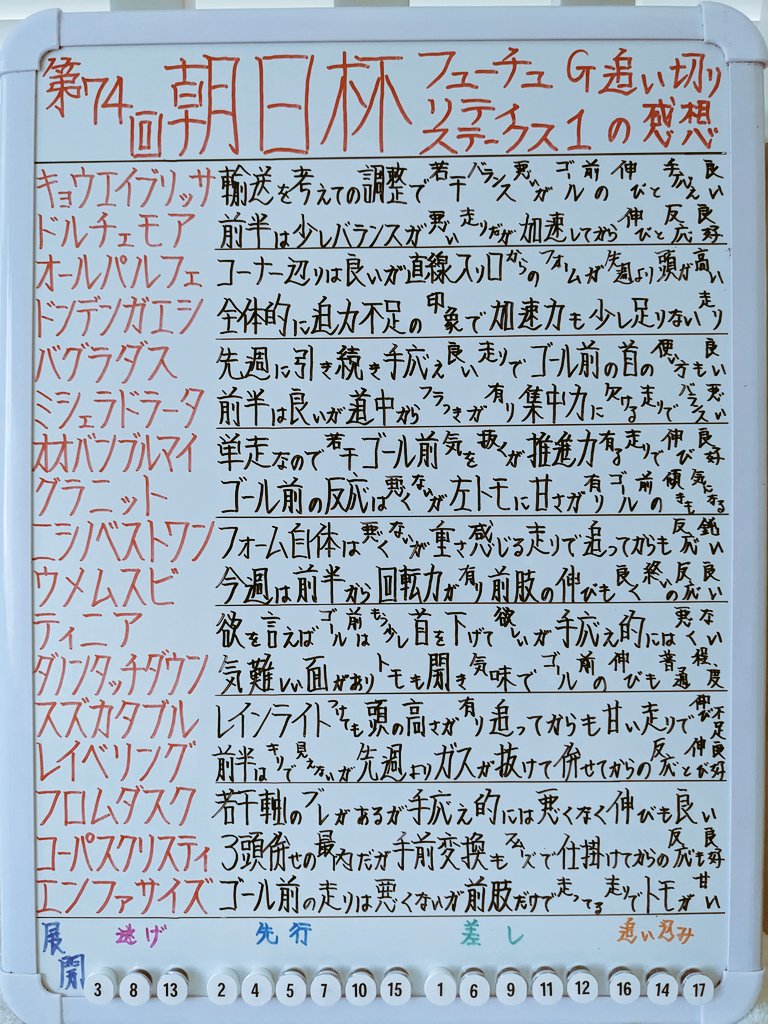 第74回 朝日杯 フューチュリティステークス G1 追い切りの感想
キョウエイブリッサ 輸送を考えての調整で若干バランス悪いがゴール前の伸びと手応え良い
ドルチェモア 前半は少しバランスが悪い走りだが加速してから伸びと反応良好
オールパルフェ コーナー辺りは良いが直線入り口からのフォームが先週より頭が高い
ドンデンガエシ 全体的に迫力不足の印象で加速力も少し足りない走り
バグラダス 先週に引き続き手応え良い走りでゴール前の首の使い方も良い
ミシェラドラータ 前半は良いが道中からフラつきが有り集中力に欠ける走りでバランス悪い
オオバンブルマイ 単走なので若干ゴール前気を抜くが推進力有る走りで伸び良好
グラニット ゴール前の反応は悪くないが左トモに甘さが有りゴール前の傾きも気になる
ニシノベストワン フォーム自体は悪くないが重さ感じる走りで追ってからも反応鈍い
ウメムスビ 今週は前半から回転力が有り前肢の伸びも良く終いの反応良い
ティニア 欲を言えばゴール前はもう少し首を下げて欲しいが手応え的には悪くない
ダノンタッチダウン 気難しい面がありトモも開き気味でゴール前の伸びも普通程度
スズカタブル レインライトつけても頭の高さが有り追ってからも甘い走りで伸び不足
レイベリング 前半はキリで見えないが先週よりガスが抜けて併せてからの反応と伸び良好
フロムダスク 若干軸のブレがあるが手応え的には悪くなく伸びも良い
コーパスクリスティ 3頭併せの最内だが手前変換もスムーズで仕掛けてからの反応も良好
エンファサイズ ゴール前の走りは悪くないが前肢だけで走ってる走りでトモが甘い
展開 逃げ 先行 差し 追い込み
3 8 13 2 4 5 7 10 15 1 6 9 11 12 16 14 17